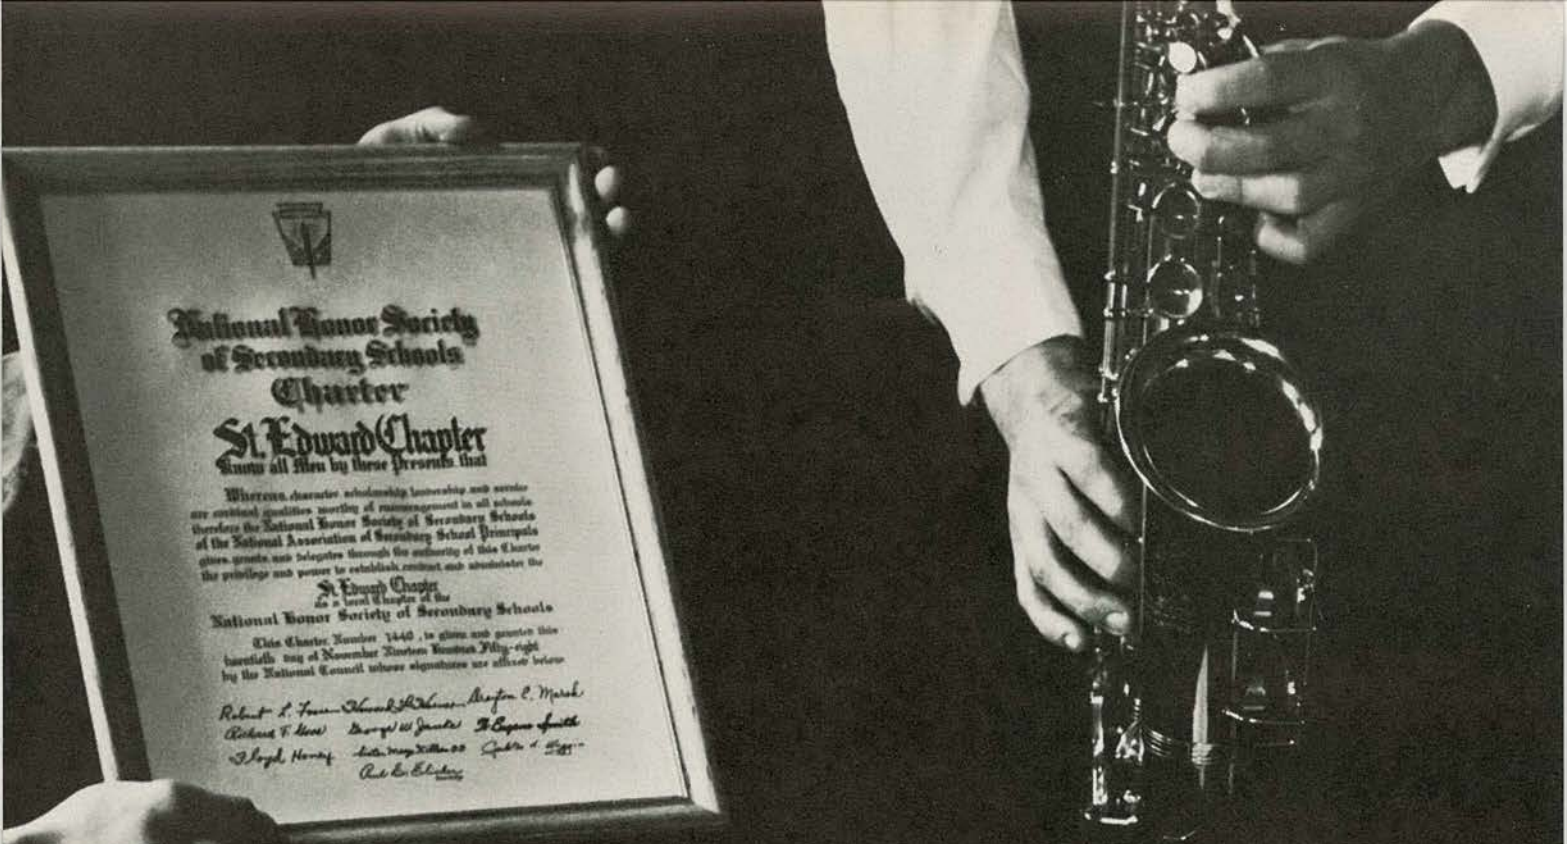 National Honor Society
of Secondary Schools
Charter
St. Edward Chapter
Know all Men by these Presents that
Whereas, character, scholarship, leadership and service
are cardinal qualities worthy of encouragement in all schools
therefore the National Honor Society of Secondary Schools
of the National Association of Secondary-School Principals
gives, grants, and delegates through the authority of this Charter
the privilege and power to establish, conduct and administer the
St. Edward Chapter
as a local Chapter of the
National Honor Society of Secondary Schools
This Charter, Number 1440, is given and granted this
twentieth day of November Nineteen Hundred Fifty-eight
by the National Council whose signatures are affixed below
Robert L. Drayton E. Marsh
Richard T. George W. Eugene Smith
Floyd Honey Sister Mary
Paul E. Elicker